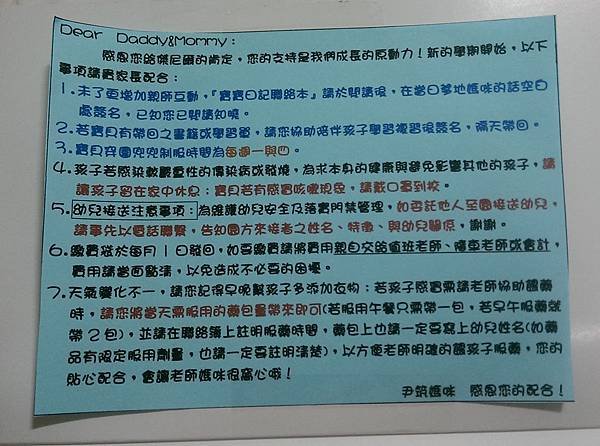 Dear Daddy&Mommy：
感恩您給傑尼爾的肯定，您的支持是我們成長的原動力！新的學期開始，以下
事項請貴家長配合：
1.未了更增加親師互動，『寶寶日記聯絡本』請於閱讀後，在當日爹地媽咪的話空白
處簽名，已知您已閱讀知曉。
2.若寶貝有帶回之書籍或學習單，請您協助陪伴孩子學習複習後簽名，隔天帶回。
3.寶貝穿園兜兜制服時間為每週一與四。
4.孩子若感染較嚴重性的傳染病或發燒，為求本身的健康與避免影響其他的孩子，請
讓孩子留在家中休息；寶貝若有感冒咳嗽現象，請戴口罩到校。
5.幼兒接送注意事項：為維護幼兒安全及落實門禁管理，如委託他人至園接送幼兒，
請事先以電話聯繫，告知園方來接者之姓名、特徵、與幼兒關係，謝謝。
6.繳費袋於每月1日發回，如要繳費請將費用親自交給值班老師、隨車老師或會計，
費用請當面點清，以免造成不必要的困擾。
7.天氣變化不一，請您記得早晚幫孩子多添加衣物；若孩子感冒需請老師協助餵藥
時，請您將當天需服用的藥包量帶來即可(若服用午餐只需帶一包，若早午服藥就
帶2包)，並請在聯絡簿上註明服藥時間，藥包上也請一定要寫上幼兒姓名(如藥
品有限定服用劑量，也請一定要註明清楚)，以方便老師明確的餵孩子服藥，您的
貼心配合，會讓老師媽咪很窩心哦！
尹筑媽咪 感恩您的配合！